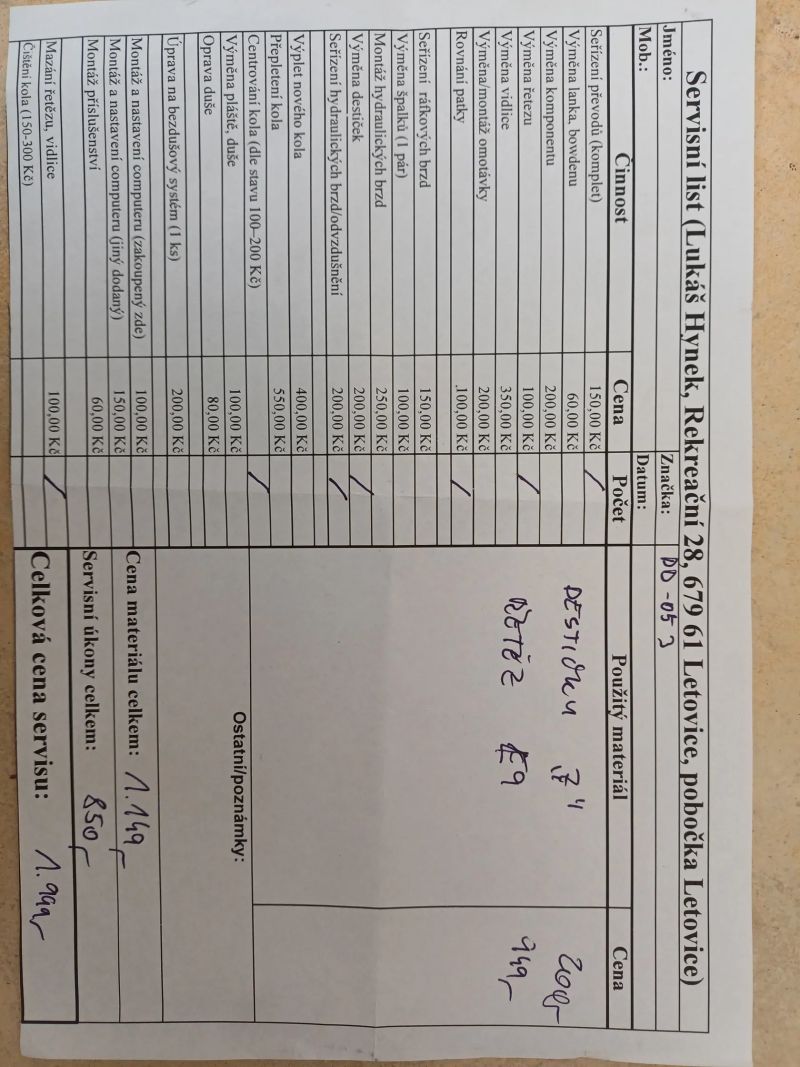 Servisní list (Lukáš Hynek, Rekreační 28, 679 61 Letovice, pobočka Letovice)
Jméno: Značka: DD-05
Mob.: Datum:
Činnost Cena Počet Použitý materiál Cena
Seřízení převodů (komplet) 150,00 Kč /
Výměna lanka, bowdenu 60,00 Kč
Výměna komponentu 200,00 Kč
Výměna řetezu 100,00 Kč / ŘETĚZ E9 949,-
Výměna vidlice 350,00 Kč
Výměna/montáž omotávky 200,00 Kč
Rovnání patky 100,00 Kč /
Seřízení ráfkových brzd 150,00 Kč
Výměna špalků (1 pár) 100,00 Kč
Montáž hydraulických brzd 250,00 Kč
Výměna destiček 200,00 Kč /
Seřízení hydraulických brzd/odvzdušnění 200,00 Kč /
Výplet nového kola 400,00 Kč
Přepletení kola 550,00 Kč
Centrování kola (dle stavu 100–200 Kč) /
Výměna pláště, duše 100,00 Kč Ostatní/poznámky:
Oprava duše 80,00 Kč
Úprava na bezdušový systém (1 ks) 200,00 Kč
Montáž a nastavení computeru (zakoupený zde) 100,00 Kč Cena materiálu celkem: 1.149,-
Montáž a nastavení computeru (jiný dodaný) 150,00 Kč
Montáž příslušenství 60,00 Kč Servisní úkony celkem: 850,-
Mazání řetězu, vidlice 100,00 Kč / Celková cena servisu: 1.999,-
Čištění kola (150-300 Kč)